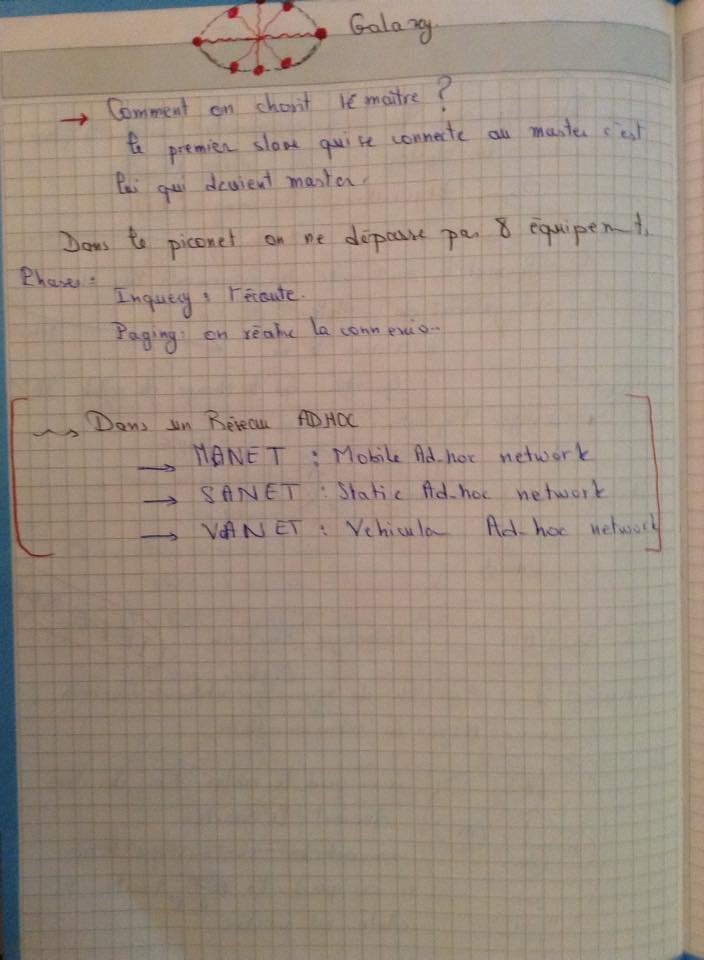 Galaxy
→ Comment on choisit le maître ?
le premier slave qui se connecte au master c'est
lui qui devient master.
Dans le piconet on ne dépasse pas 8 équipement.
Phases :
Inquery : l'écoute.
Paging : on réalise la connexio..
Dans un Réseau ADHOC
→ MANET : Mobile Ad-hoc network
→ SANET : Static Ad-hoc network
→ VANET : Vehicula Ad-hoc network